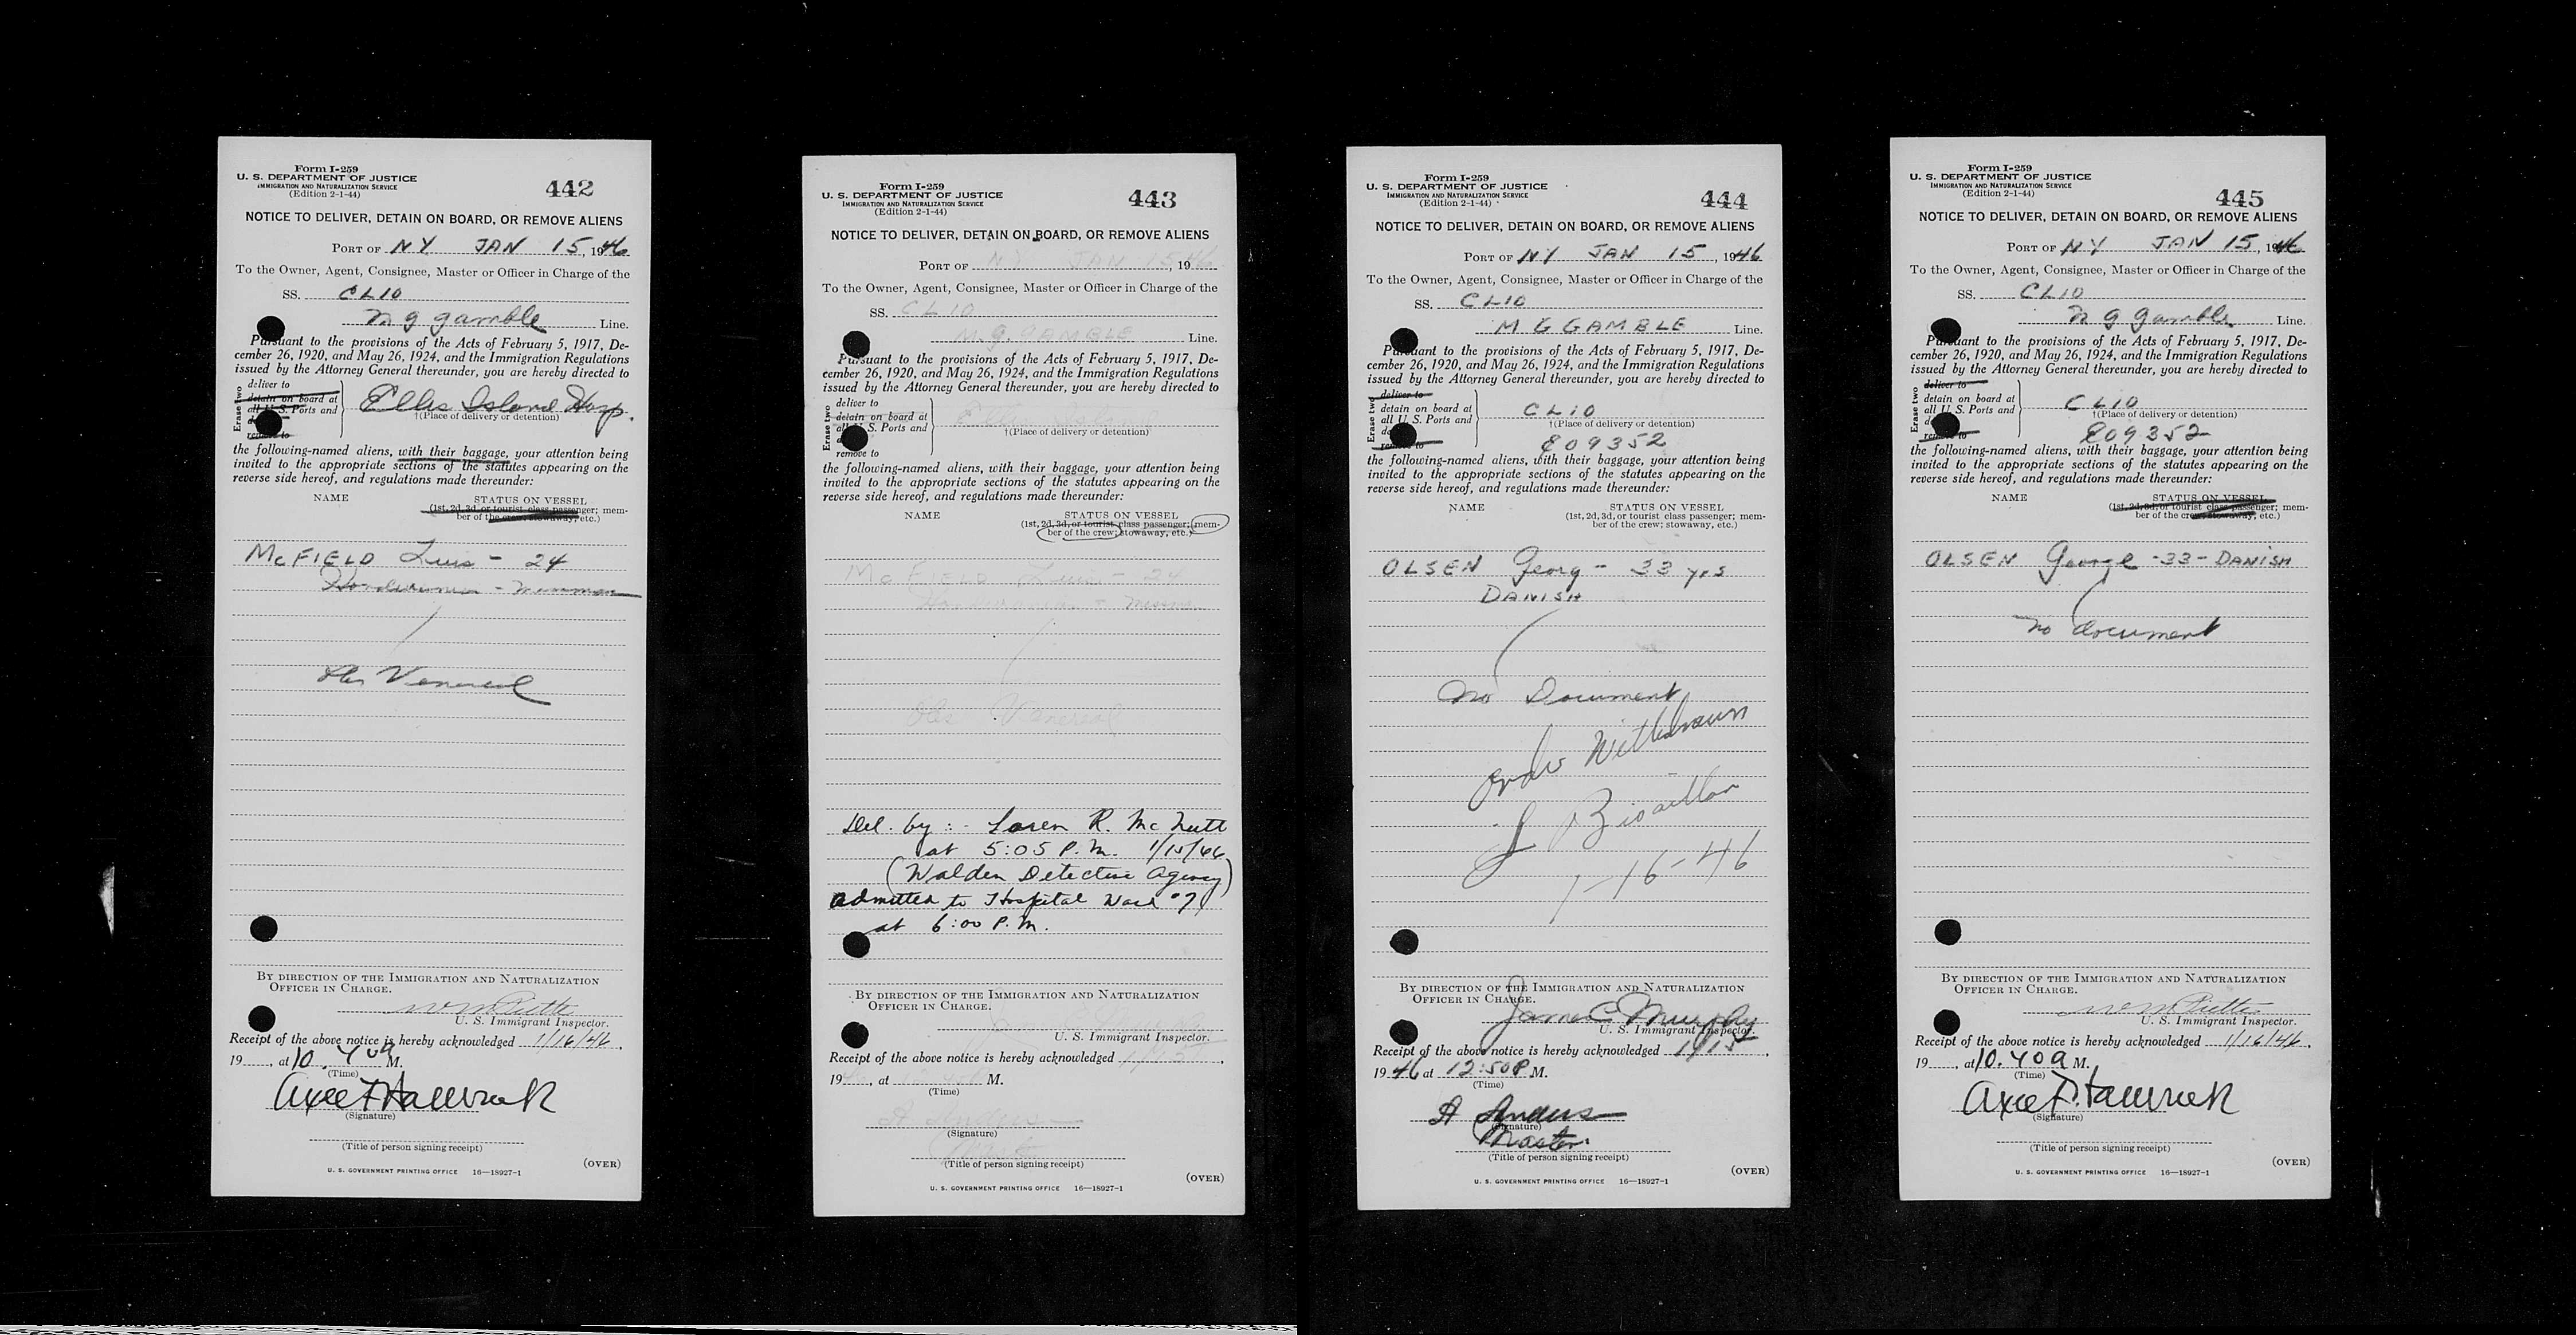 Form I-259
U. S. DEPARTMENT OF JUSTICE
IMMIGRATION AND NATURALIZATION SERVICE
(Edition 2-1-44)
442
NOTICE TO DELIVER, DETAIN ON BOARD, OR REMOVE ALIENS
PORT OF NY JAN 15, 1946
To the Owner, Agent, Consignee, Master or Officer in Charge of the
SS. CLIO
M G Gamble Line.
Pursuant to the provisions of the Acts of February 5, 1917, De-
cember 26, 1920, and May 26, 1924, and the Immigration Regulations
issued by the Attorney General thereunder, you are hereby directed to
Erase two
deliver to
detain on board at
all U. S. Ports and
remove to
Ellis Island Hosp.
†(Place of delivery or detention)
the following-named aliens, with their baggage, your attention being
invited to the appropriate sections of the statutes appearing on the
reverse side hereof, and regulations made thereunder:
NAME STATUS ON VESSEL
(1st, 2d, 3d, or tourist class passenger; mem-
ber of the crew; stowaway, etc.)
McFIELD Luis - 24
Honduranian - Messman
Venereal
BY DIRECTION OF THE IMMIGRATION AND NATURALIZATION
OFFICER IN CHARGE.
U. S. Immigrant Inspector.
Receipt of the above notice is hereby acknowledged 1/16/46,
19, at 10.40a M.
(Time)
(Signature)
(Title of person signing receipt)
(OVER)
U. S. GOVERNMENT PRINTING OFFICE 16—18927-1
Form I-259
U. S. DEPARTMENT OF JUSTICE
IMMIGRATION AND NATURALIZATION SERVICE
(Edition 2-1-44)
443
NOTICE TO DELIVER, DETAIN ON BOARD, OR REMOVE ALIENS
PORT OF NY JAN 15, 1946
To the Owner, Agent, Consignee, Master or Officer in Charge of the
SS. CLIO
M. G. GAMBLE Line.
Pursuant to the provisions of the Acts of February 5, 1917, De-
cember 26, 1920, and May 26, 1924, and the Immigration Regulations
issued by the Attorney General thereunder, you are hereby directed to
Erase two
deliver to
detain on board at
all U. S. Ports and
remove to
†(Place of delivery or detention)
the following-named aliens, with their baggage, your attention being
invited to the appropriate sections of the statutes appearing on the
reverse side hereof, and regulations made thereunder:
NAME STATUS ON VESSEL
(1st, 2d, 3d, or tourist class passenger; mem-
ber of the crew; stowaway, etc.)
McFIELD Luis - 24
Honduranian - Messman
Venereal
Del. by:- Loren R. McNutt
at 5:05 P.M. 1/15/46
(Walden Detective Agency)
admitted to Hospital Ward #7
at 6:00 P.M.
BY DIRECTION OF THE IMMIGRATION AND NATURALIZATION
OFFICER IN CHARGE.
U. S. Immigrant Inspector.
Receipt of the above notice is hereby acknowledged 1/15,
19, at M.
(Time)
(Signature)
(Title of person signing receipt)
(OVER)
U. S. GOVERNMENT PRINTING OFFICE 16—18927-1
Form I-259
U. S. DEPARTMENT OF JUSTICE
IMMIGRATION AND NATURALIZATION SERVICE
(Edition 2-1-44)
444
NOTICE TO DELIVER, DETAIN ON BOARD, OR REMOVE ALIENS
PORT OF NY JAN 15, 1946
To the Owner, Agent, Consignee, Master or Officer in Charge of the
SS. CLIO
M G GAMBLE Line.
Pursuant to the provisions of the Acts of February 5, 1917, De-
cember 26, 1920, and May 26, 1924, and the Immigration Regulations
issued by the Attorney General thereunder, you are hereby directed to
Erase two
deliver to
detain on board at
all U. S. Ports and
remove to
CLIO
†(Place of delivery or detention)
809352
the following-named aliens, with their baggage, your attention being
invited to the appropriate sections of the statutes appearing on the
reverse side hereof, and regulations made thereunder:
NAME STATUS ON VESSEL
(1st, 2d, 3d, or tourist class passenger; mem-
ber of the crew; stowaway, etc.)
OLSEN Georg - 33 yrs
DANISH
No Document
Order Withdrawn
J Bisaillon
1-16-46
BY DIRECTION OF THE IMMIGRATION AND NATURALIZATION
OFFICER IN CHARGE.
James C Murphy
U. S. Immigrant Inspector.
Receipt of the above notice is hereby acknowledged 1/15,
1946 at 12:50 P. M.
(Time)
A Anders
(Signature)
Master
(Title of person signing receipt)
(OVER)
U. S. GOVERNMENT PRINTING OFFICE 16—18927-1
Form I-259
U. S. DEPARTMENT OF JUSTICE
IMMIGRATION AND NATURALIZATION SERVICE
(Edition 2-1-44)
445
NOTICE TO DELIVER, DETAIN ON BOARD, OR REMOVE ALIENS
PORT OF NY JAN 15, 1946
To the Owner, Agent, Consignee, Master or Officer in Charge of the
SS. CLIO
M G Gamble Line.
Pursuant to the provisions of the Acts of February 5, 1917, De-
cember 26, 1920, and May 26, 1924, and the Immigration Regulations
issued by the Attorney General thereunder, you are hereby directed to
Erase two
deliver to
detain on board at
all U. S. Ports and
remove to
CLIO
†(Place of delivery or detention)
809352
the following-named aliens, with their baggage, your attention being
invited to the appropriate sections of the statutes appearing on the
reverse side hereof, and regulations made thereunder:
NAME STATUS ON VESSEL
(1st, 2d, 3d, or tourist class passenger; mem-
ber of the crew; stowaway, etc.)
OLSEN George - 33 - DANISH
no document
BY DIRECTION OF THE IMMIGRATION AND NATURALIZATION
OFFICER IN CHARGE.
U. S. Immigrant Inspector.
Receipt of the above notice is hereby acknowledged 1/16/46,
19, at 10.40a M.
(Time)
(Signature)
(Title of person signing receipt)
(OVER)
U. S. GOVERNMENT PRINTING OFFICE 16—18927-1